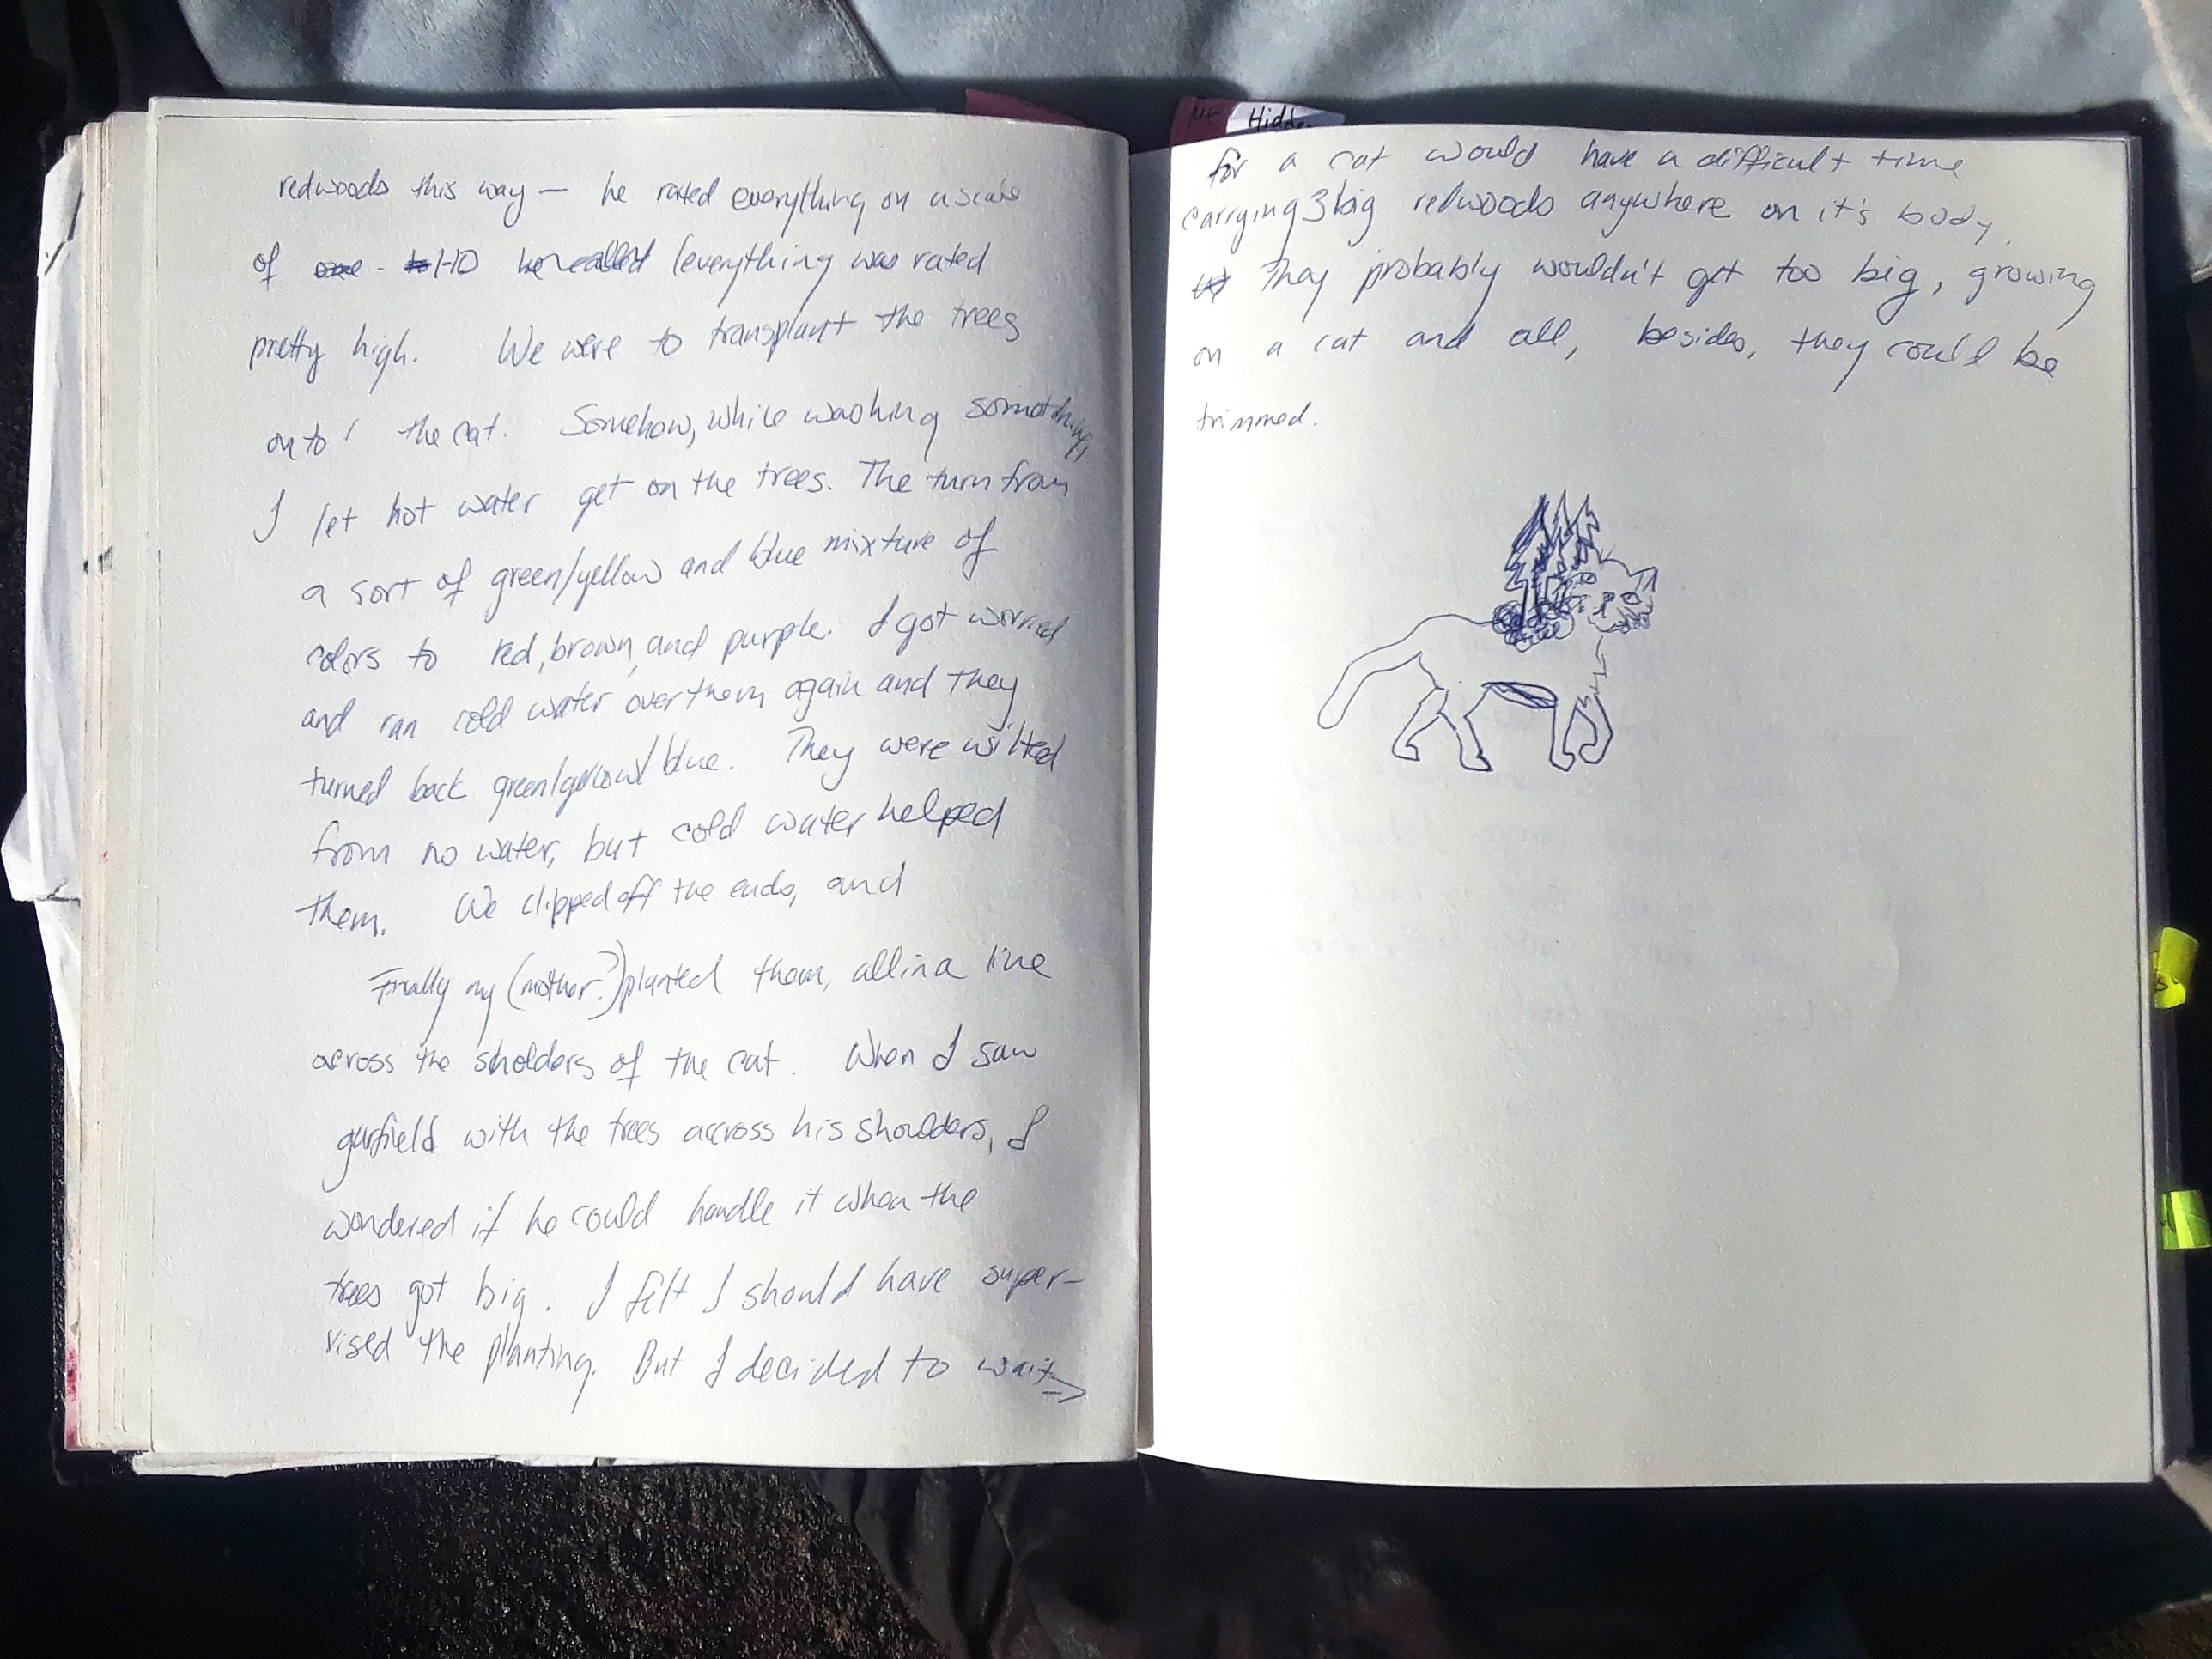 redwoods this way — he rated everything on a scale
of one - to 1-10 he called (everything was rated
pretty high. We were to transplant the trees
onto the cat. Somehow, while washing something,
I let hot water get on the trees. The turn from
a sort of green/yellow and blue mixture of
colors to red, brown, and purple. I got worried
and ran cold water over them again and they
turned back green/yellow/blue. They were wilted
from no water, but cold water helped
them. We clipped off the ends, and
Finally my (mother?) planted them, all in a line
across the sholders of the cat. When I saw
garfield with the trees across his shoulders, I
wondered if he could handle it when the
trees got big. I felt I should have super-
vised the planting. But I decided to wait →
Hidde
for a cat would have a difficult time
carrying 3 big redwoods anywhere on it's body.
They probably wouldn't get too big, growing
on a cat and all, besides, they could be
trimmed.